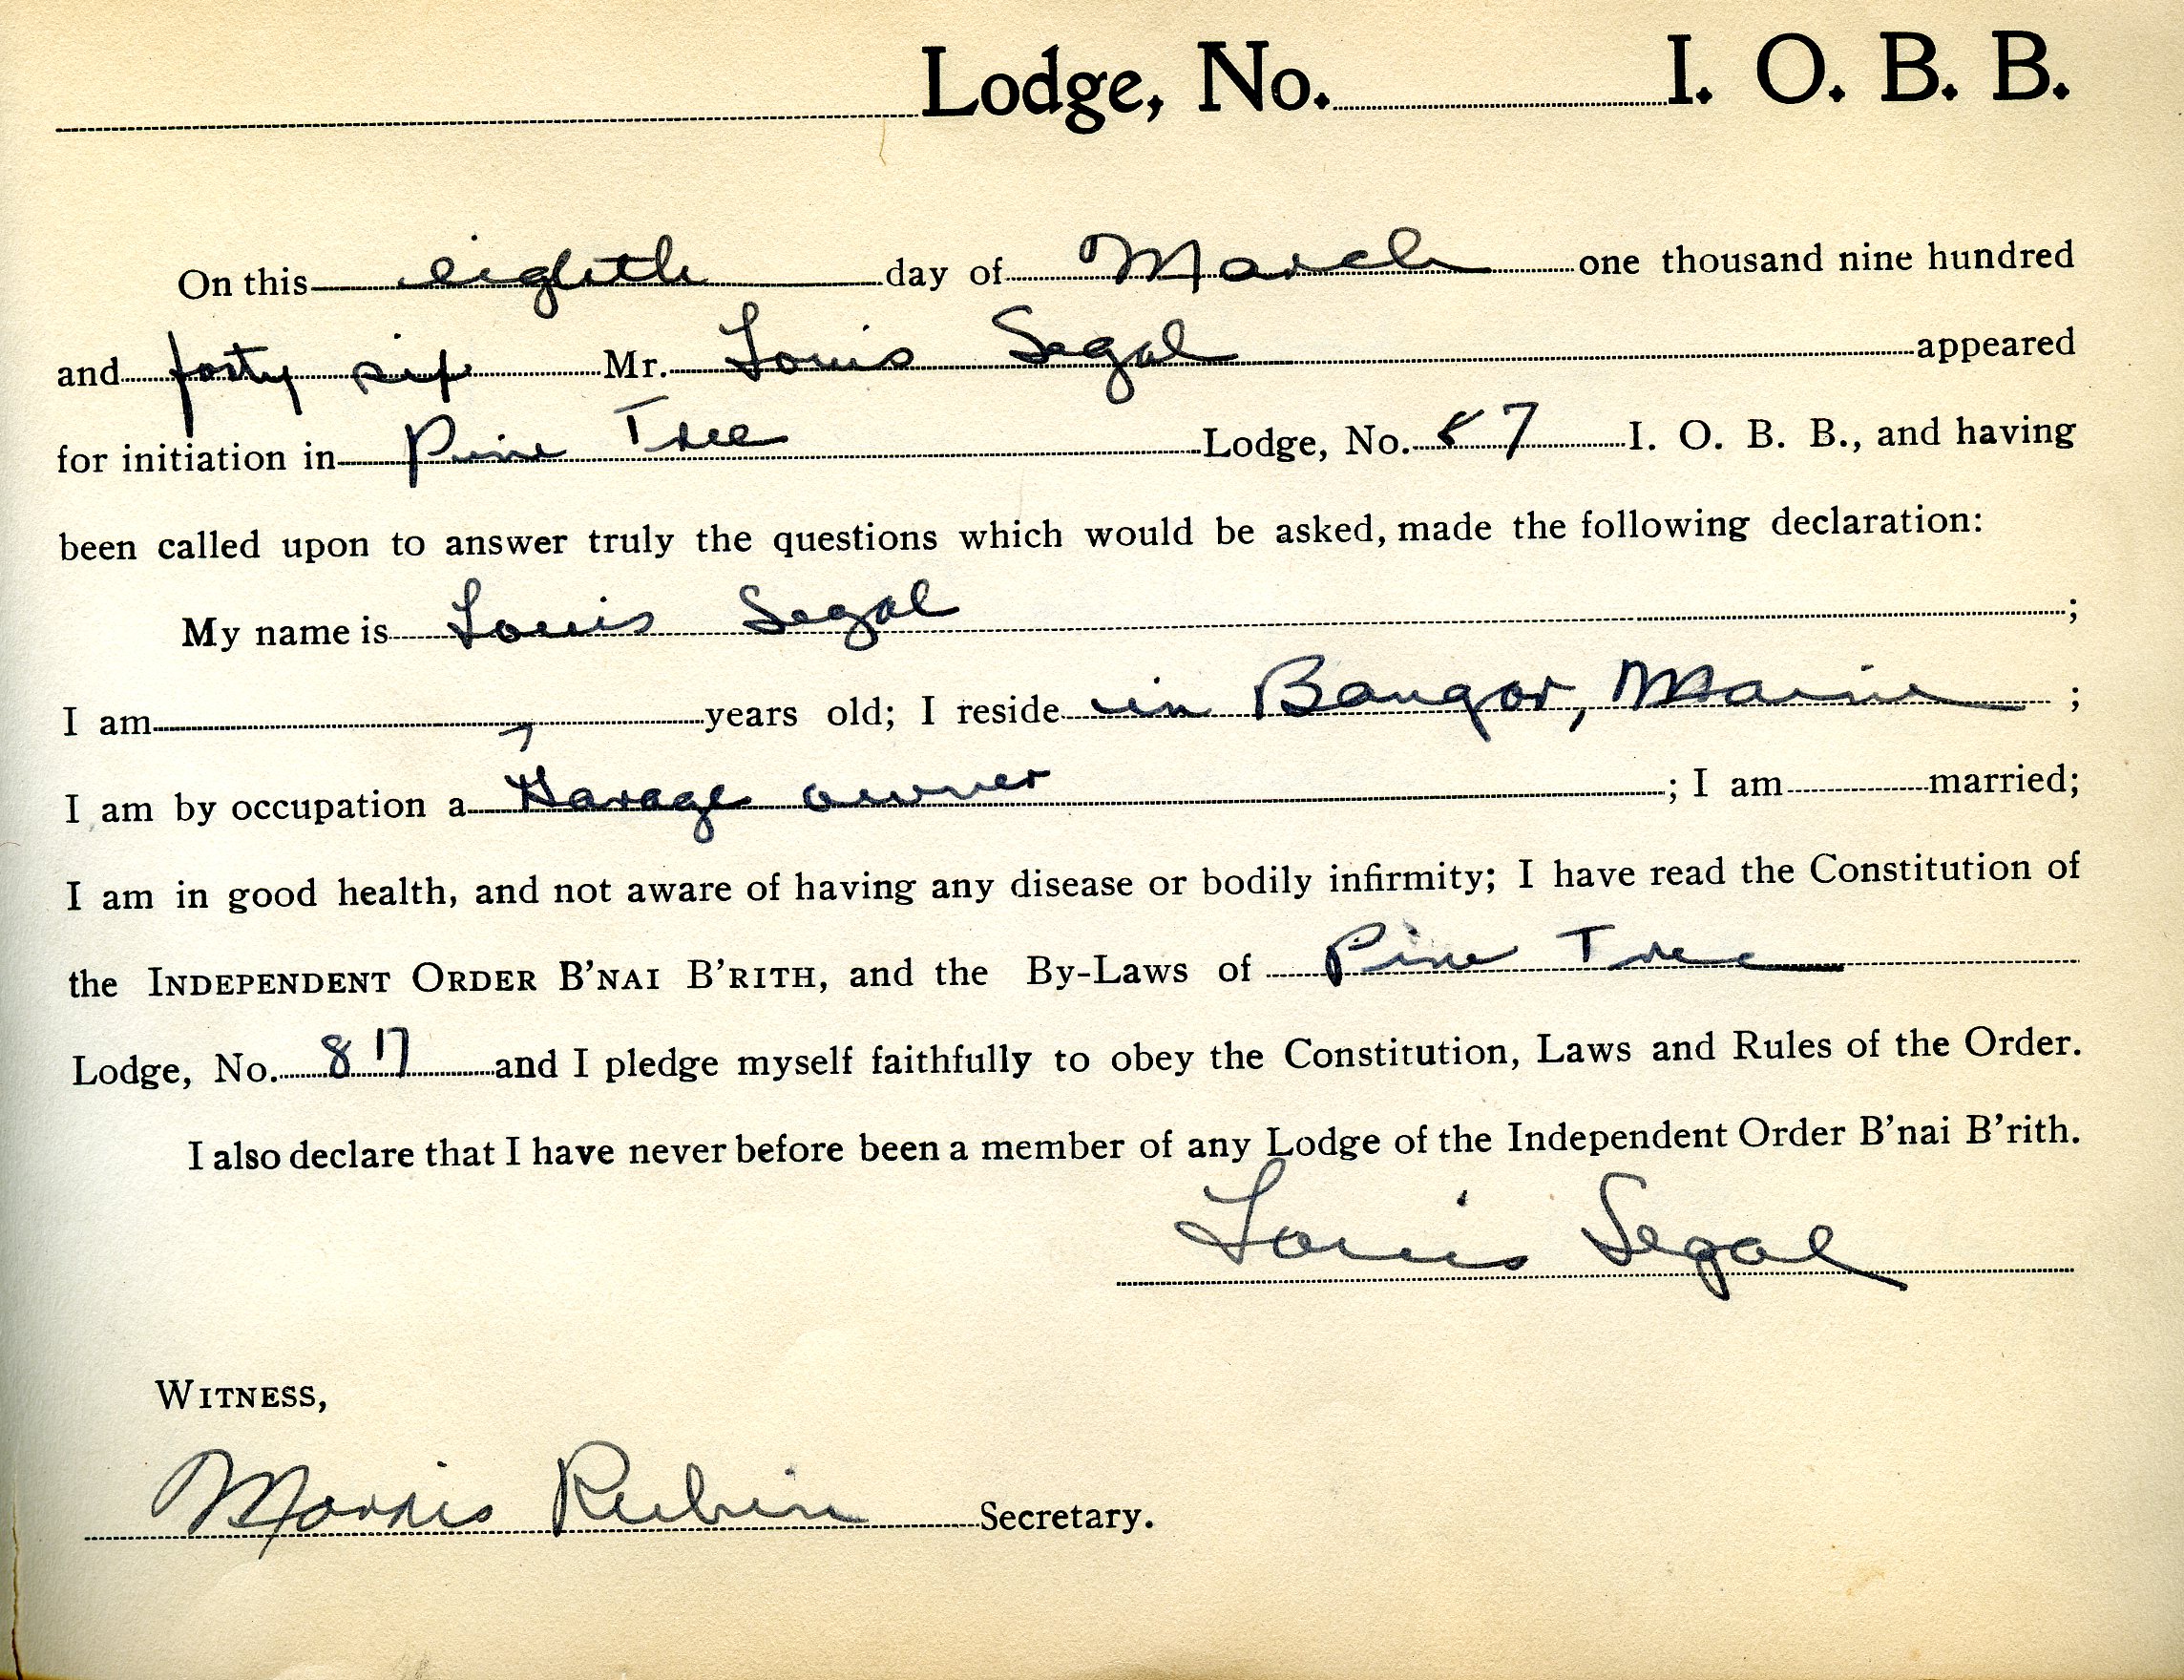 Lodge, No. I. O. B. B.
On this eighth day of March one thousand nine hundred
and forty six Mr. Louis Segal appeared
for initiation in Pine Tree Lodge, No. 87 I. O. B. B., and having
been called upon to answer truly the questions which would be asked, made the following declaration:
My name is Louis Segal ;
I am years old; I reside in Bangor, Maine ;
I am by occupation a Garage owner ; I am married;
I am in good health, and not aware of having any disease or bodily infirmity; I have read the Constitution of
the INDEPENDENT ORDER B'NAI B'RITH, and the By-Laws of Pine Tree
Lodge, No. 817 and I pledge myself faithfully to obey the Constitution, Laws and Rules of the Order.
I also declare that I have never before been a member of any Lodge of the Independent Order B'nai B'rith.
Louis Segal
WITNESS,
Morris Rubin Secretary.